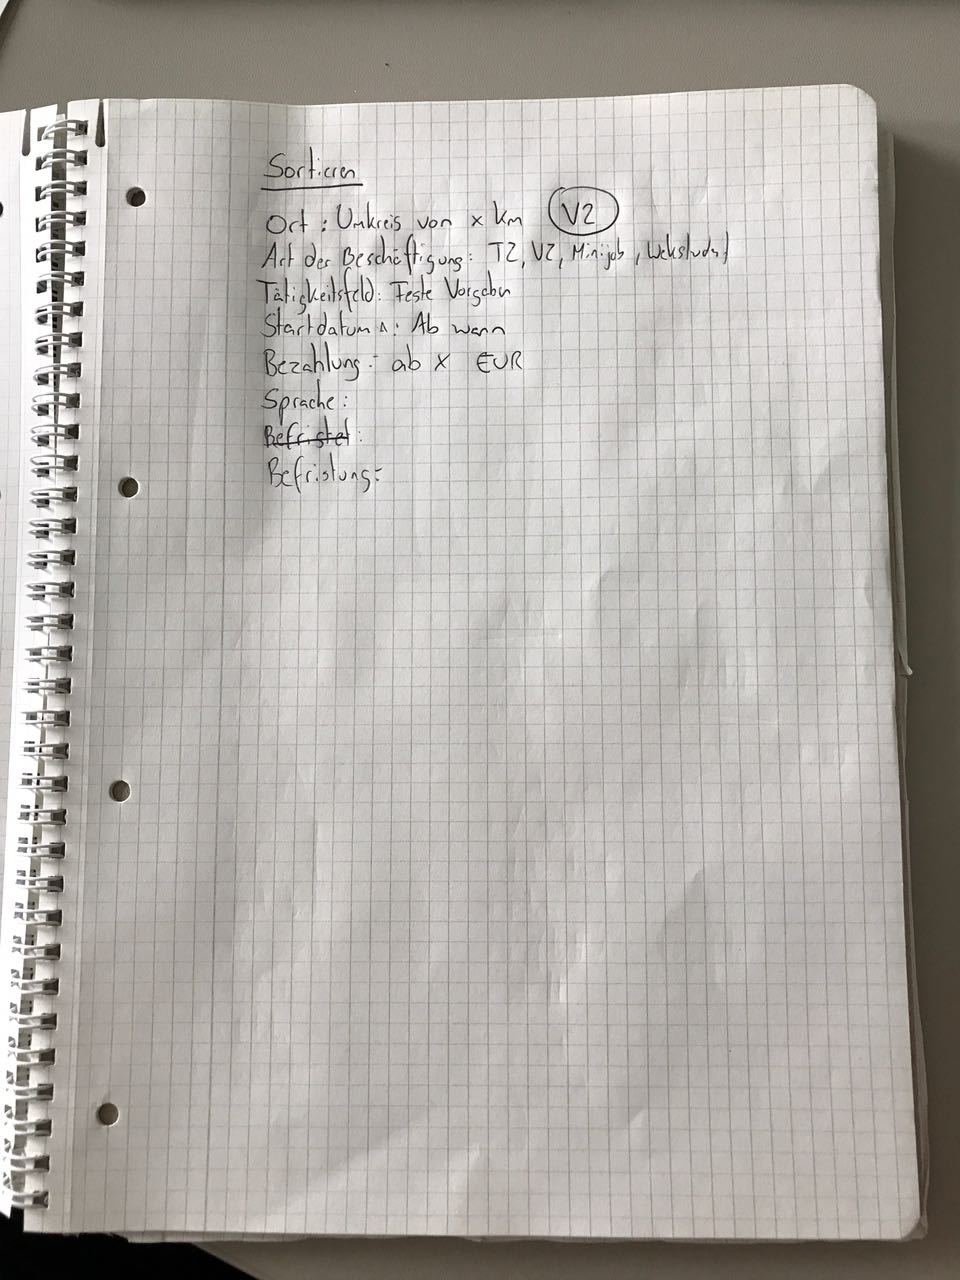 Sortieren
Ort : Umkreis von x km V2
Art der Beschäftigung: TZ, VZ, Minijob, Wekstudent
Tätigkeitsfeld: Feste Vorgaben
Startdatum : Ab wann
Bezahlung: ab x EUR
Sprache:
Befristet:
Befristung: